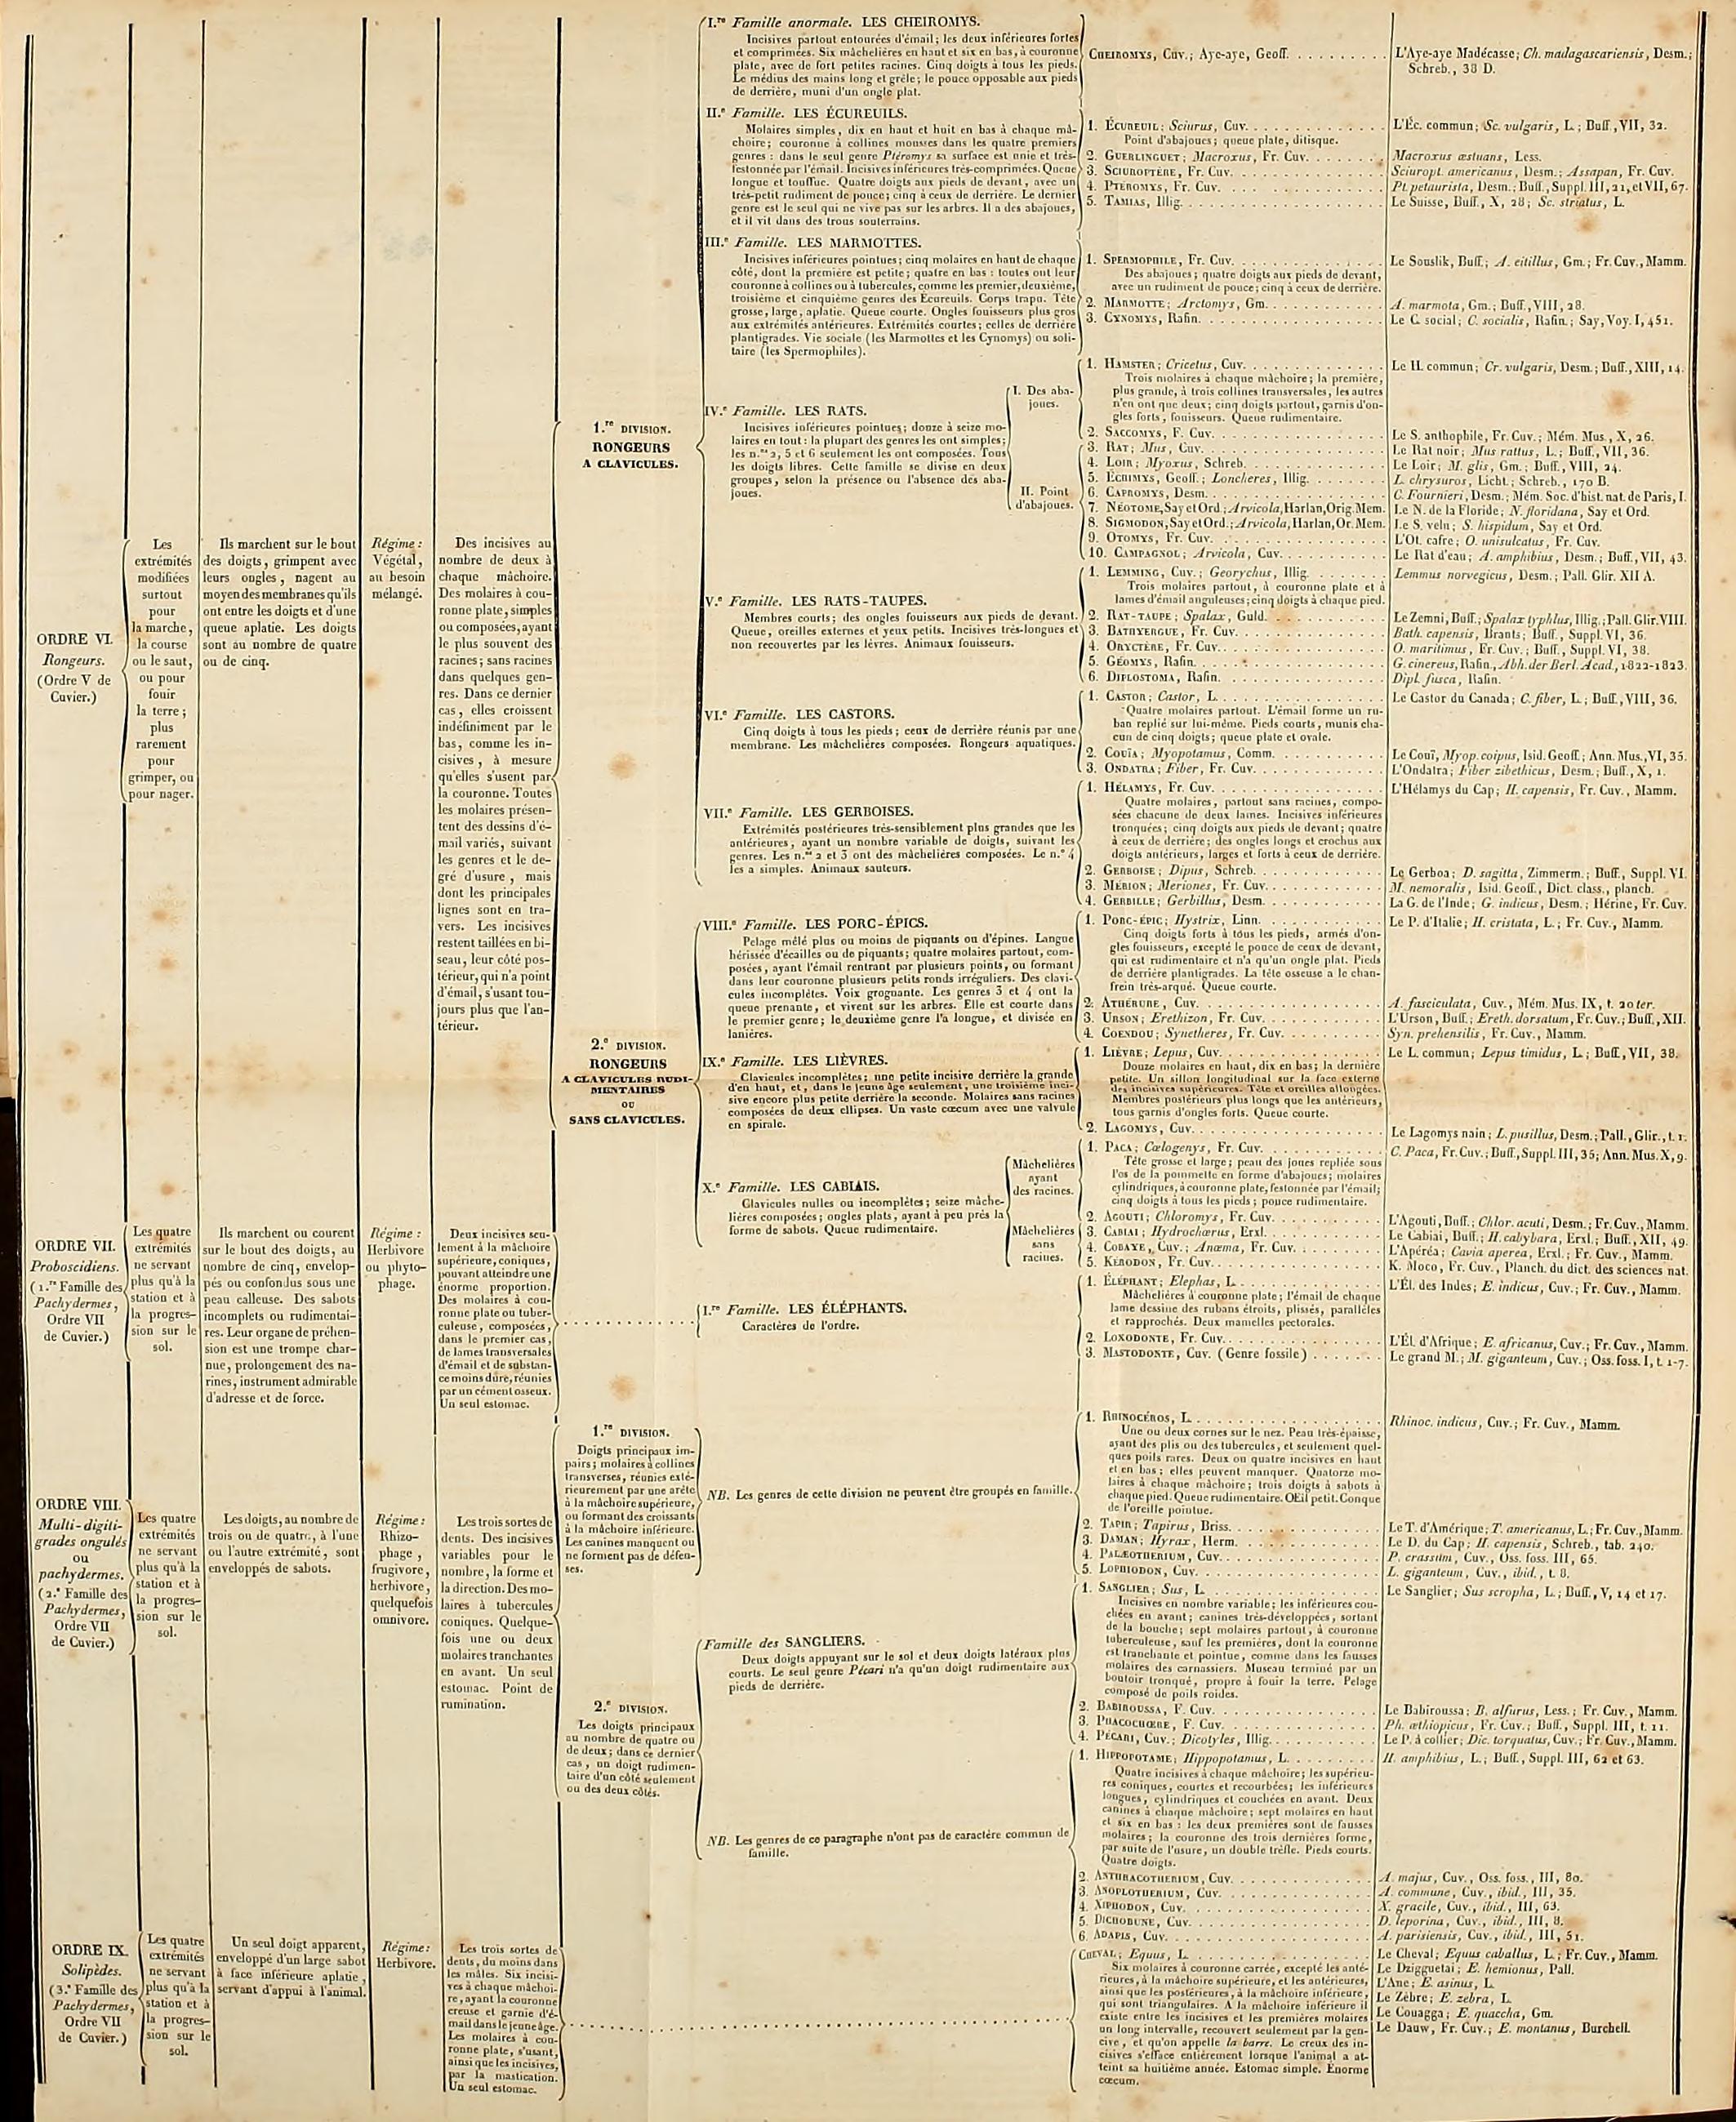 ORDRE VI.
Rongeurs.
(Ordre V de
Cuvier.)
Les
extrémités
modifiées
surtout
pour
la marche,
la course
ou le saut,
ou pour
fouir
la terre;
plus
rarement
pour
grimper, ou
pour nager.
Ils marchent sur le bout
des doigts, grimpent avec
leurs ongles, nagent au
moyen des membranes qu'ils
ont entre les doigts et d'une
queue aplatie. Les doigts
sont au nombre de quatre
ou de cinq.
Régime:
Végétal,
au besoin
mélangé.
Des incisives au
nombre de deux à
chaque mâchoire.
Des molaires à cou-
ronne plate, simples
ou composées, ayant
le plus souvent des
racines; sans racines
dans quelques gen-
res. Dans ce dernier
cas, elles croissent
indéfiniment par le
bas, comme les in-
cisives, à mesure
qu'elles s'usent par
la couronne. Toutes
les molaires présen-
tent des dessins d'é-
mail variés, suivant
les genres et le de-
gré d'usure, mais
dont les principales
lignes sont en tra-
vers. Les incisives
restent taillées en bi-
seau, leur côté pos-
térieur, qui n'a point
d'émail, s'usant tou-
jours plus que l'an-
térieur.
1.re DIVISION.
RONGEURS
A CLAVICULES.
I.re Famille anormale. LES CHEIROMYS.
Incisives partout entourées d'émail; les deux inférieures fortes
et comprimées. Six mâchelières en haut et six en bas, à couronne
plate, avec de fort petites racines. Cinq doigts à tous les pieds.
Le médius des mains long et grêle; le pouce opposable aux pieds
de derrière, muni d'un ongle plat.
CHEIROMYS, Cuv.; Aye-aye, Geoff. . . . . . . . . .
L'Aye-aye Madécasse; Ch. madagascariensis, Desm.;
Schreb., 38 D.
II.e Famille. LES ÉCUREUILS.
Molaires simples, dix en haut et huit en bas à chaque mâ-
choire; couronne à collines mousses dans les quatre premiers
genres: dans le seul genre Ptéromys sa surface est unie et très-
festonnée par l'émail. Incisives inférieures très-comprimées. Queue
longue et touffue. Quatre doigts aux pieds de devant, avec un
très-petit rudiment de pouce; cinq à ceux de derrière. Le dernier
genre est le seul qui ne vive pas sur les arbres. Il a des abajoues,
et il vit dans des trous souterrains.
1. ÉCUREUIL; Sciurus, Cuv. . . . . . . . . . . . . .
Point d'abajoues; queue plate, ditisque.
2. GUERLINGUET; Macroxus, Fr. Cuv. . . . . . . .
3. SCIUROPTÈRE, Fr. Cuv. . . . . . . . . . . . . .
4. PTÉROMYS, Fr. Cuv. . . . . . . . . . . . . . .
5. TAMIAS, Illig. . . . . . . . . . . . . . . . . .
L'Éc. commun; Sc. vulgaris, L.; Buff., VII, 32.
Macroxus æstuans, Less.
Sciuropt. americanus, Desm.; Assapan, Fr. Cuv.
Pt. petaurista, Desm.; Buff., Suppl. III, 21, et VII, 67.
Le Suisse, Buff., X, 28; Sc. striatus, L.
III.e Famille. LES MARMOTTES.
Incisives inférieures pointues; cinq molaires en haut de chaque
côté, dont la première est petite; quatre en bas: toutes ont leur
couronne à collines ou à tubercules, comme les premier, deuxième,
troisième et cinquième genres des Écureuils. Corps trapu. Tête
grosse, large, aplatie. Queue courte. Ongles fouisseurs plus gros
aux extrémités antérieures. Extrémités courtes; celles de derrière
plantigrades. Vie sociale (les Marmottes et les Cynomys) ou soli-
taire (les Spermophiles).
1. SPERMOPHILE, Fr. Cuv. . . . . . . . . . . . . .
Des abajoues; quatre doigts aux pieds de devant,
avec un rudiment de pouce; cinq à ceux de derrière.
2. MARMOTTE; Arctomys, Gm. . . . . . . . . . . .
3. CYNOMYS, Rafin. . . . . . . . . . . . . . . . .
Le Souslik, Buff.; A. citillus, Gm.; Fr. Cuv., Mamm.
A. marmota, Gm.; Buff., VIII, 28.
Le C. social; C. socialis, Rafin.; Say, Voy. I, 451.
IV.e Famille. LES RATS.
Incisives inférieures pointues; douze à seize mo-
laires en tout: la plupart des genres les ont simples;
les n.os 2, 5 et 6 seulement les ont composées. Tous
les doigts libres. Cette famille se divise en deux
groupes, selon la présence ou l'absence des aba-
joues.
I. Des aba-
joues.
II. Point
d'abajoues.
1. HAMSTER; Cricetus, Cuv. . . . . . . . . . . . .
Trois molaires à chaque mâchoire; la première,
plus grande, à trois collines transversales, les autres
n'en ont que deux; cinq doigts partout, garnis d'on-
gles forts, fouisseurs. Queue rudimentaire.
2. SACCOMYS, F. Cuv. . . . . . . . . . . . . . . .
3. RAT; Mus, Cuv. . . . . . . . . . . . . . . . .
4. LOIR; Myoxus, Schreb. . . . . . . . . . . . . .
5. ÉCHIMYS, Geoff.; Loncheres, Illig. . . . . . . .
6. CAPROMYS, Desm. . . . . . . . . . . . . . . .
7. NÉOTOME, Say et Ord.; Arvicola, Harlan, Orig. Mem.
8. SIGMODON, Say et Ord.; Arvicola, Harlan, Or. Mem.
9. OTOMYS, Fr. Cuv. . . . . . . . . . . . . . . .
10. CAMPAGNOL; Arvicola, Cuv. . . . . . . . . . .
Le H. commun; Cr. vulgaris, Desm.; Buff., XIII, 14.
Le S. anthophile, Fr. Cuv.; Mém. Mus., X, 26.
Le Rat noir; Mus rattus, L.; Buff., VII, 36.
Le Loir; M. glis, Gm.; Buff., VIII, 24.
L. chrysuros, Licht.; Schreb., 170 B.
C. Fournieri, Desm.; Mém. Soc. d'hist. nat. de Paris, I.
Le N. de la Floride; N. floridana, Say et Ord.
Le S. velu; S. hispidum, Say et Ord.
L'Ot. cafre; O. unisulcatus, Fr. Cuv.
Le Rat d'eau; A. amphibius, Desm.; Buff., VII, 43.
V.e Famille. LES RATS-TAUPES.
Membres courts; des ongles fouisseurs aux pieds de devant.
Queue, oreilles externes et yeux petits. Incisives très-longues et
non recouvertes par les lèvres. Animaux fouisseurs.
1. LEMMING, Cuv.; Georychus, Illig. . . . . . . .
Trois molaires partout, à couronne plate et à
lames d'émail anguleuses; cinq doigts à chaque pied.
2. RAT-TAUPE; Spalax, Guld. . . . . . . . . . . .
3. BATHYERGUE, Fr. Cuv. . . . . . . . . . . . . .
4. ORYCTÈRE, Fr. Cuv. . . . . . . . . . . . . . .
5. GÉOMYS, Rafin. . . . . . . . . . . . . . . . .
6. DIPLOSTOMA, Rafin. . . . . . . . . . . . . . .
Lemmus norvegicus, Desm.; Pall. Glir. XII A.
Le Zemni, Buff.; Spalax typhlus, Illig.; Pall. Glir. VIII.
Bath. capensis, Brants; Buff., Suppl. VI, 36.
O. maritimus, Fr. Cuv.; Buff., Suppl. VI, 38.
G. cinereus, Rafin., Abh. der Berl. Acad., 1822-1823.
Dipl. fusca, Rafin.
VI.e Famille. LES CASTORS.
Cinq doigts à tous les pieds; ceux de derrière réunis par une
membrane. Les mâchelières composées. Rongeurs aquatiques.
1. CASTOR; Castor, L. . . . . . . . . . . . . . . .
Quatre molaires partout. L'émail forme un ru-
ban replié sur lui-même. Pieds courts, munis cha-
cun de cinq doigts; queue plate et ovale.
2. COUÏA; Myopotamus, Comm. . . . . . . . . . .
3. ONDATRA; Fiber, Fr. Cuv. . . . . . . . . . . .
Le Castor du Canada; C. fiber, L.; Buff., VIII, 36.
Le Couï, Myop. coipus, Isid. Geoff.; Ann. Mus., VI, 35.
L'Ondatra; Fiber zibethicus, Desm.; Buff., X, 1.
VII.e Famille. LES GERBOISES.
Extrémités postérieures très-sensiblement plus grandes que les
antérieures, ayant un nombre variable de doigts, suivant les
genres. Les n.os 2 et 3 ont des mâchelières composées. Le n.o 4
les a simples. Animaux sauteurs.
1. HÉLAMYS, Fr. Cuv. . . . . . . . . . . . . . . .
Quatre molaires, partout sans racines, compo-
sées chacune de deux lames. Incisives inférieures
tronquées; cinq doigts aux pieds de devant; quatre
à ceux de derrière; des ongles longs et crochus aux
doigts antérieurs, larges et forts à ceux de derrière.
2. GERBOISE; Dipus, Schreb. . . . . . . . . . . .
3. MÉRION; Meriones, Fr. Cuv. . . . . . . . . . .
4. GERBILLE; Gerbillus, Desm. . . . . . . . . . .
L'Hélamys du Cap; H. capensis, Fr. Cuv., Mamm.
Le Gerboa; D. sagitta, Zimmerm.; Buff., Suppl. VI.
M. nemoralis, Isid. Geoff., Dict. class., planch.
La G. de l'Inde; G. indicus, Desm.; Hérine, Fr. Cuv.
2.e DIVISION.
RONGEURS
A CLAVICULES RUDI-
MENTAIRES
OU
SANS CLAVICULES.
VIII.e Famille. LES PORC-ÉPICS.
Pelage mêlé plus ou moins de piquants ou d'épines. Langue
hérissée d'écailles ou de piquants; quatre molaires partout, com-
posées, ayant l'émail rentrant par plusieurs points, ou formant
dans leur couronne plusieurs petits ronds irréguliers. Des clavi-
cules incomplètes. Voix grognante. Les genres 3 et 4 ont la
queue prenante, et vivent sur les arbres. Elle est courte dans
le premier genre; le deuxième genre l'a longue, et divisée en
lanières.
1. PORC-ÉPIC; Hystrix, Linn. . . . . . . . . . . .
Cinq doigts forts à tous les pieds, armés d'on-
gles fouisseurs, excepté le pouce de ceux de devant,
qui est rudimentaire et n'a qu'un ongle plat. Pieds
de derrière plantigrades. La tête osseuse a le chan-
frein très-arqué. Queue courte.
2. ATHÉRURE, Cuv. . . . . . . . . . . . . . . . .
3. URSON; Erethizon, Fr. Cuv. . . . . . . . . . .
4. COENDOU; Synetheres, Fr. Cuv. . . . . . . . .
Le P. d'Italie; H. cristata, L.; Fr. Cuv., Mamm.
A. fasciculata, Cuv., Mém. Mus. IX, t. 20 ter.
L'Urson, Buff.; Ereth. dorsatum, Fr. Cuv.; Buff., XII.
Syn. prehensilis, Fr. Cuv., Mamm.
IX.e Famille. LES LIÈVRES.
Clavicules incomplètes; une petite incisive derrière la grande
d'en haut, et, dans le jeune âge seulement, une troisième inci-
sive encore plus petite derrière la seconde. Molaires sans racines
composées de deux ellipses. Un vaste cœcum avec une valvule
en spirale.
1. LIÈVRE; Lepus, Cuv. . . . . . . . . . . . . . .
Douze molaires en haut, dix en bas; la dernière
petite. Un sillon longitudinal sur la face externe
des incisives supérieures. Tête et oreilles allongées.
Membres postérieurs plus longs que les antérieurs,
tous garnis d'ongles forts. Queue courte.
2. LAGOMYS, Cuv. . . . . . . . . . . . . . . . . .
Le L. commun; Lepus timidus, L.; Buff., VII, 38.
Le Lagomys nain; L. pusillus, Desm.; Pall., Glir., t. 1.
X.e Famille. LES CABIAIS.
Clavicules nulles ou incomplètes; seize mâche-
lières composées; ongles plats, ayant à peu près la
forme de sabots. Queue rudimentaire.
Mâchelières
ayant
des racines.
Mâchelières
sans
racines.
1. PACA; Cœlogenys, Fr. Cuv. . . . . . . . . . . .
Tête grosse et large; peau des joues repliée sous
l'os de la pommette en forme d'abajoues; molaires
cylindriques, à couronne plate, festonnée par l'émail;
cinq doigts à tous les pieds; pouce rudimentaire.
2. AGOUTI; Chloromys, Fr. Cuv. . . . . . . . . .
3. CABIAI; Hydrochœrus, Erxl. . . . . . . . . . .
4. COBAYE, Cuv.; Anœma, Fr. Cuv. . . . . . . . .
5. KÉRODON, Fr. Cuv. . . . . . . . . . . . . . . .
C. Paca, Fr. Cuv.; Buff., Suppl. III, 35; Ann. Mus. X, 9.
L'Agouti, Buff.; Chlor. acuti, Desm.; Fr. Cuv., Mamm.
Le Cabiai, Buff.; H. cabybara, Erxl.; Buff., XII, 49.
L'Apéréa; Cavia aperea, Erxl.; Fr. Cuv., Mamm.
K. Moco, Fr. Cuv., Planch. du dict. des sciences nat.
ORDRE VII.
Proboscidiens.
(1.re Famille des
Pachydermes,
Ordre VII
de Cuvier.)
Les quatre
extrémités
ne servant
plus qu'à la
station et à
la progres-
sion sur le
sol.
Ils marchent ou courent
sur le bout des doigts, au
nombre de cinq, envelop-
pés ou confondus sous une
peau calleuse. Des sabots
incomplets ou rudimentai-
res. Leur organe de préhen-
sion est une trompe char-
nue, prolongement des na-
rines, instrument admirable
d'adresse et de force.
Régime:
Herbivore
ou phyto-
phage.
Deux incisives seu-
lement à la mâchoire
supérieure, coniques,
pouvant atteindre une
énorme proportion.
Des molaires à cou-
ronne plate ou tuber-
culeuse, composées,
dans le premier cas,
de lames transversales
d'émail et de substan-
ce moins dure, réunies
par un cément osseux.
Un seul estomac.
I.re Famille. LES ÉLÉPHANTS.
Caractères de l'ordre.
1. ÉLÉPHANT; Elephas, L. . . . . . . . . . . . . .
Mâchelières à couronne plate; l'émail de chaque
lame dessine des rubans étroits, plissés, parallèles
et rapprochés. Deux mamelles pectorales.
2. LOXODONTE, Fr. Cuv. . . . . . . . . . . . . . .
3. MASTODONTE, Cuv. (Genre fossile) . . . . . . .
L'Él. des Indes; E. indicus, Cuv.; Fr. Cuv., Mamm.
L'Él. d'Afrique; E. africanus, Cuv.; Fr. Cuv., Mamm.
Le grand M.; M. giganteum, Cuv.; Oss. foss. I, t. 1-7.
ORDRE VIII.
Multi-digiti-
grades ongulés
ou
pachydermes.
(2.e Famille des
Pachydermes,
Ordre VII
de Cuvier.)
Les quatre
extrémités
ne servant
plus qu'à la
station et à
la progres-
sion sur le
sol.
Les doigts, au nombre de
trois ou de quatre, à l'une
ou l'autre extrémité, sont
enveloppés de sabots.
Régime:
Rhizo-
phage,
frugivore,
herbivore,
quelquefois
omnivore.
Les trois sortes de
dents. Des incisives
variables pour le
nombre, la forme et
la direction. Des mo-
laires à tubercules
coniques. Quelque-
fois une ou deux
molaires tranchantes
en avant. Un seul
estomac. Point de
rumination.
1.re DIVISION.
Doigts principaux im-
pairs; molaires à collines
transverses, réunies exté-
rieurement par une arête
à la mâchoire supérieure,
ou formant des croissants
à la mâchoire inférieure.
Les canines manquent ou
ne forment pas de défen-
ses.
NB. Les genres de cette division ne peuvent être groupés en famille.
1. RHINOCÉROS, L. . . . . . . . . . . . . . . . . .
Une ou deux cornes sur le nez. Peau très-épaisse,
ayant des plis ou des tubercules, et seulement quel-
ques poils rares. Deux ou quatre incisives en haut
et en bas; elles peuvent manquer. Quatorze mo-
laires à chaque mâchoire; trois doigts à sabots à
chaque pied. Queue rudimentaire. Œil petit. Conque
de l'oreille pointue.
2. TAPIR; Tapirus, Briss. . . . . . . . . . . . . .
3. DAMAN; Hyrax, Herm. . . . . . . . . . . . . .
4. PALÆOTHERIUM, Cuv. . . . . . . . . . . . . . .
5. LOPHIODON, Cuv. . . . . . . . . . . . . . . . .
Rhinoc. indicus, Cuv.; Fr. Cuv., Mamm.
Le T. d'Amérique; T. americanus, L.; Fr. Cuv., Mamm.
Le D. du Cap; H. capensis, Schreb., tab. 240.
P. crassum, Cuv., Oss. foss. III, 65.
L. giganteum, Cuv., ibid., t. 8.
2.e DIVISION.
Les doigts principaux
au nombre de quatre ou
de deux; dans ce dernier
cas, un doigt rudimen-
taire d'un côté seulement
ou des deux côtés.
Famille des SANGLIERS.
Deux doigts appuyant sur le sol et deux doigts latéraux plus
courts. Le seul genre Pécari n'a qu'un doigt rudimentaire aux
pieds de derrière.
1. SANGLIER; Sus, L. . . . . . . . . . . . . . . . .
Incisives en nombre variable; les inférieures cou-
chées en avant; canines très-développées, sortant
de la bouche; sept molaires partout, à couronne
tuberculeuse, sauf les premières, dont la couronne
est tranchante et pointue, comme dans les fausses
molaires des carnassiers. Museau terminé par un
boutoir tronqué, propre à fouir la terre. Pelage
composé de poils roides.
2. BABIROUSSA, F. Cuv. . . . . . . . . . . . . . .
3. PHACOCHŒRE, F. Cuv. . . . . . . . . . . . . .
4. PÉCARI, Cuv.; Dicotyles, Illig. . . . . . . . . .
Le Sanglier; Sus scropha, L.; Buff., V, 14 et 17.
Le Babiroussa; B. alfurus, Less.; Fr. Cuv., Mamm.
Ph. æthiopicus, Fr. Cuv.; Buff., Suppl. III, t. 11.
Le P. à collier; Dic. torquatus, Cuv.; Fr. Cuv., Mamm.
NB. Les genres de ce paragraphe n'ont pas de caractère commun de
famille.
1. HIPPOPOTAME; Hippopotamus, L. . . . . . . . .
Quatre incisives à chaque mâchoire; les supérieu-
res coniques, courtes et recourbées; les inférieures
longues, cylindriques et couchées en avant. Deux
canines à chaque mâchoire; sept molaires en haut
et six en bas: les deux premières sont de fausses
molaires; la couronne des trois dernières forme,
par suite de l'usure, un double trèfle. Pieds courts.
Quatre doigts.
2. ANTHRACOTHERIUM, Cuv. . . . . . . . . . . . .
3. ANOPLOTHERIUM, Cuv. . . . . . . . . . . . . .
4. XIPHODON, Cuv. . . . . . . . . . . . . . . . .
5. DICHOBUNE, Cuv. . . . . . . . . . . . . . . . .
6. ADAPIS, Cuv. . . . . . . . . . . . . . . . . . .
H. amphibius, L.; Buff., Suppl. III, 62 et 63.
A. majus, Cuv., Oss. foss., III, 80.
A. commune, Cuv., ibid., III, 35.
X. gracile, Cuv., ibid., III, 63.
D. leporina, Cuv., ibid., III, 8.
A. parisiensis, Cuv., ibid., III, 51.
ORDRE IX.
Solipèdes.
(3.e Famille des
Pachydermes,
Ordre VII
de Cuvier.)
Les quatre
extrémités
ne servant
plus qu'à la
station et à
la progres-
sion sur le
sol.
Un seul doigt apparent,
enveloppé d'un large sabot
à face inférieure aplatie,
servant d'appui à l'animal.
Régime:
Herbivore.
Les trois sortes de
dents, du moins dans
les mâles. Six incisi-
ves à chaque mâchoi-
re, ayant la couronne
creuse et garnie d'é-
mail dans le jeune âge.
Les molaires à cou-
ronne plate, s'usant,
ainsi que les incisives,
par la mastication.
Un seul estomac.
CHEVAL; Equus, L. . . . . . . . . . . . . . . . . .
Six molaires à couronne carrée, excepté les anté-
rieures, à la mâchoire supérieure, et les antérieures,
ainsi que les postérieures, à la mâchoire inférieure,
qui sont triangulaires. A la mâchoire inférieure il
existe entre les incisives et les premières molaires
un long intervalle, recouvert seulement par la gen-
cive, et qu'on appelle la barre. Le creux des in-
cisives s'efface entièrement lorsque l'animal a at-
teint sa huitième année. Estomac simple. Énorme
cœcum.
Le Cheval; Equus caballus, L.; Fr. Cuv., Mamm.
Le Dzigguetai; E. hemionus, Pall.
L'Ane; E. asinus, L.
Le Zèbre; E. zebra, L.
Le Couagga; E. quaccha, Gm.
Le Dauw, Fr. Cuv.; E. montanus, Burchell.